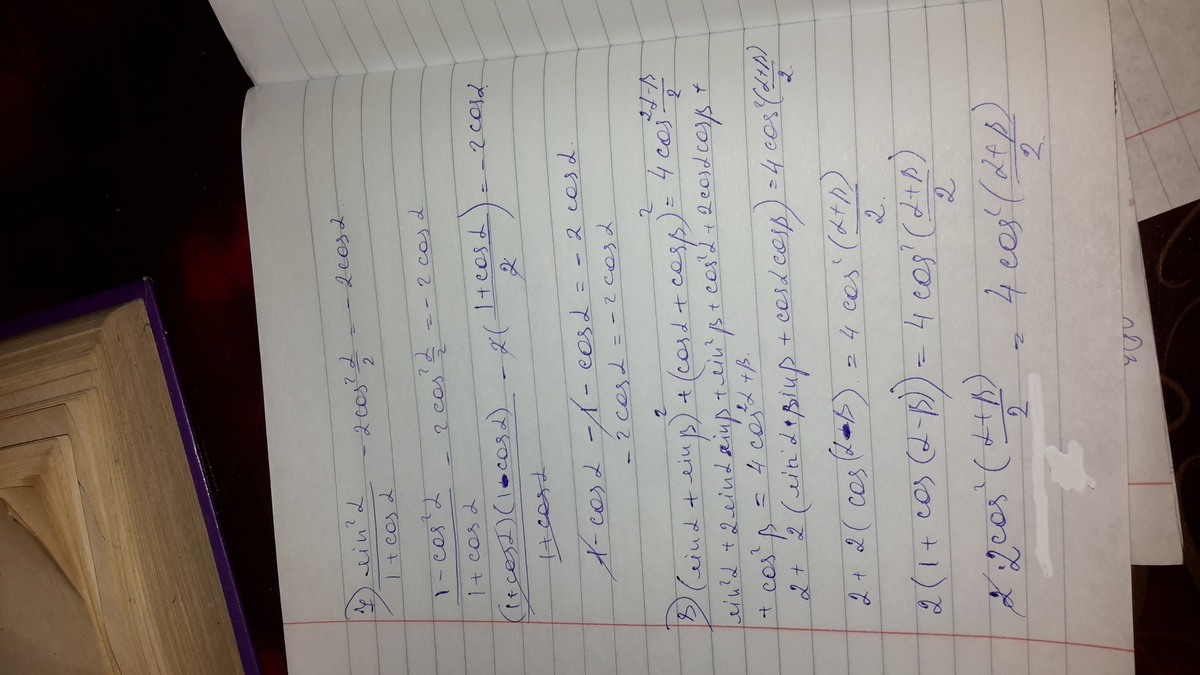 7) sin²α/(1+cosα) - 2cos² α/2 = -2cosα.
(1-cos²α)/(1+cosα) - 2cos² α/2 = -2cosα
(1+cosα)(1-cosα)/(1+cosα) - 2((1+cosα)/2) = -2cosα.
1-cosα - 1 - cosα = -2cosα.
-2cosα = -2cosα
8) (sinα + sinβ)² + (cosα + cosβ)² = 4cos² (α-β)/2
sin²α + 2sinα sinβ + sin²β + cos²α + 2cosα cosβ +
+ cos²β = 4cos²α+β.
2 + 2(sinα·sinβ + cosα cosβ) = 4cos² (α+β)/2
2 + 2(cos(α-β) = 4cos² (α+β)/2
2(1 + cos(α-β)) = 4cos² (α+β)/2
2·2cos² (α+β)/2 = 4cos² (α+β)/2.